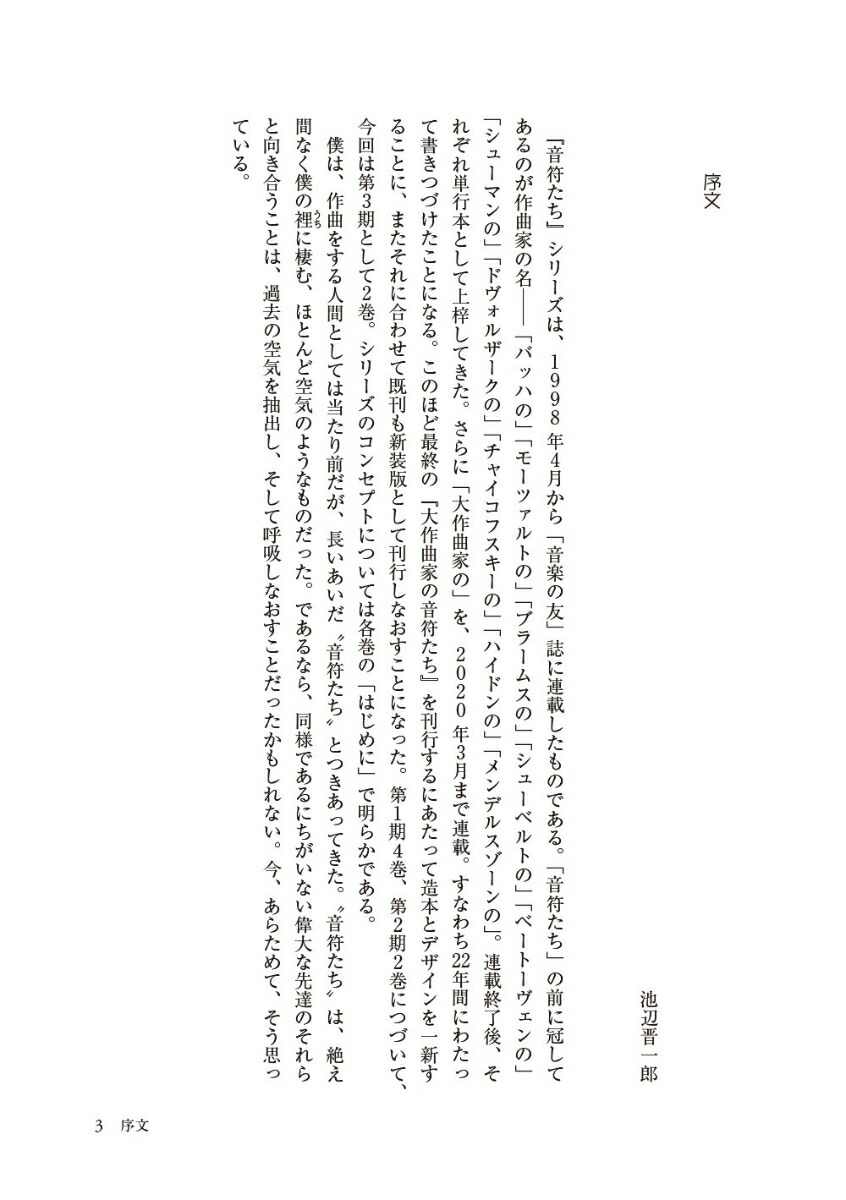 序文
池辺晋一郎
『音符たち』シリーズは、1998年4月から「音楽の友」誌に連載したものである。「音符たち」の前に冠して
あるのが作曲家の名――「バッハの」「モーツァルトの」「ブラームスの」「シューベルトの」「ベートーヴェンの」
「シューマンの」「ドヴォルザークの」「チャイコフスキーの」「ハイドンの」「メンデルスゾーンの」。連載終了後、そ
れぞれ単行本として上梓してきた。さらに「大作曲家の」を、2020年3月まで連載。すなわち22年間にわたっ
て書きつづけたことになる。このほど最終の『大作曲家の音符たち』を刊行するにあたって造本とデザインを一新す
ることに、またそれに合わせて既刊も新装版として刊行しなおすことになった。第1期4巻、第2期2巻につづいて、
今回は第3期として2巻。シリーズのコンセプトについては各巻の「はじめに」で明らかである。
僕は、作曲をする人間としては当たり前だが、長いあいだ〝音符たち〟とつきあってきた。〝音符たち〟は、絶え
間なく僕の裡うちに棲む、ほとんど空気のようなものだった。であるなら、同様であるにちがいない偉大な先達のそれら
と向き合うことは、過去の空気を抽出し、そして呼吸しなおすことだったかもしれない。今、あらためて、そう思っ
ている。
3 序文